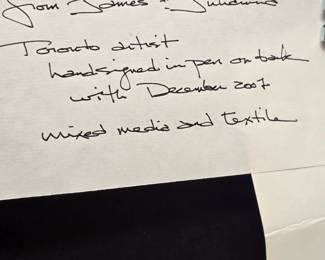 from James & Julianna
Toronto artist
handsigned in pen on back
with December 2007
mixed media and textile